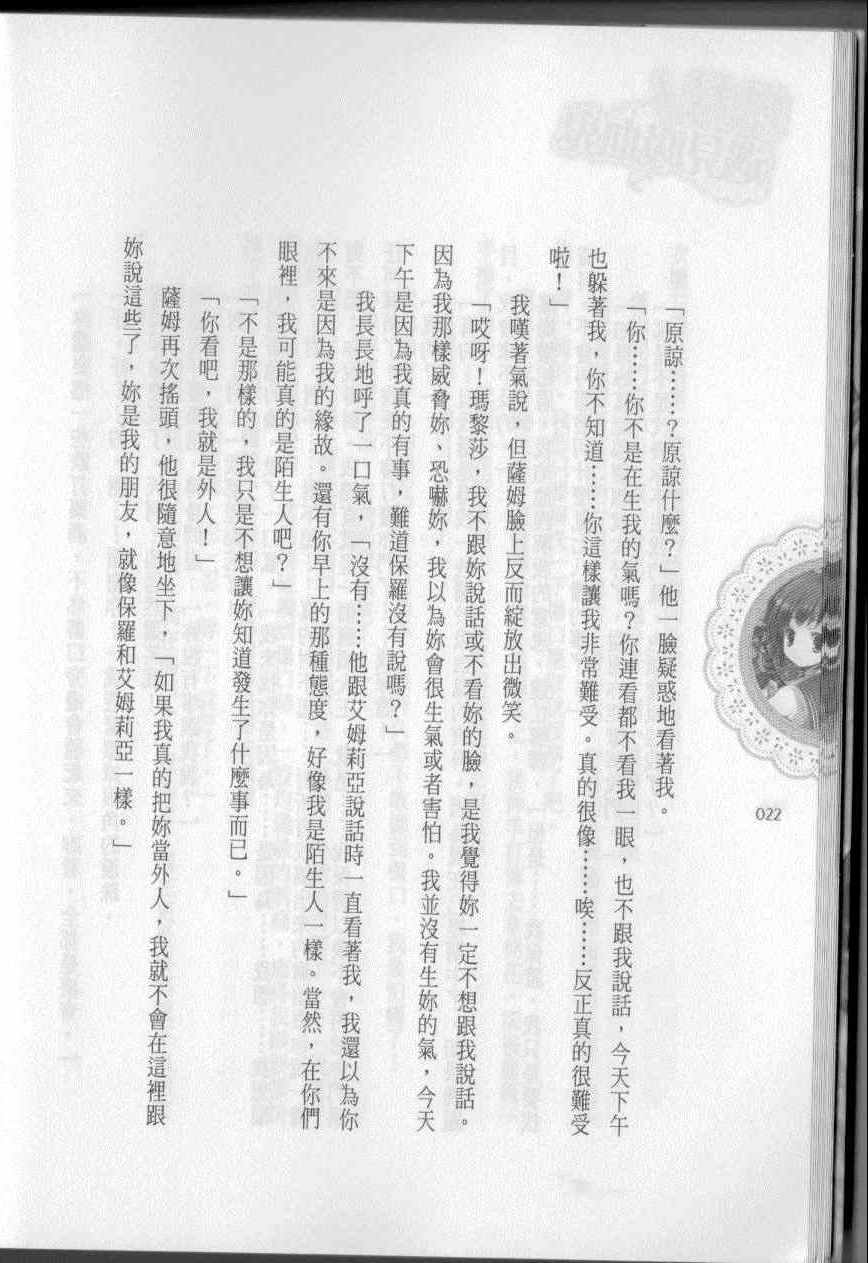 「原諒……？原諒什麼？」他一臉疑惑地看著我。
「你……你不是在生我的氣嗎？你連看都不看我一眼，也不跟我說話，今天下午
也躲著我，你不知道……你這樣讓我非常難受。真的很像……唉……反正真的很難受
啦！」
我嘆著氣說，但薩姆臉上反而綻放出微笑。
「哎呀！瑪黎莎，我不跟妳說話或不看妳的臉，是我覺得妳一定不想跟我說話。
因為我那樣威脅妳、恐嚇妳，我以為妳會很生氣或者害怕。我並沒有生妳的氣，今天
下午是因為我真的有事，難道保羅沒有說嗎？」
我長長地呼了一口氣，「沒有……他跟艾姆莉亞說話時一直看著我，我還以為你
不來是因為我的緣故。還有你早上的那種態度，好像我是陌生人一樣。當然，在你們
眼裡，我可能真的是陌生人吧？」
「不是那樣的，我只是不想讓妳知道發生了什麼事而已。」
「你看吧，我就是外人！」
薩姆再次搖頭，他很隨意地坐下，「如果我真的把妳當外人，我就不會在這裡跟
妳說這些了，妳是我的朋友，就像保羅和艾姆莉亞一樣。」
022